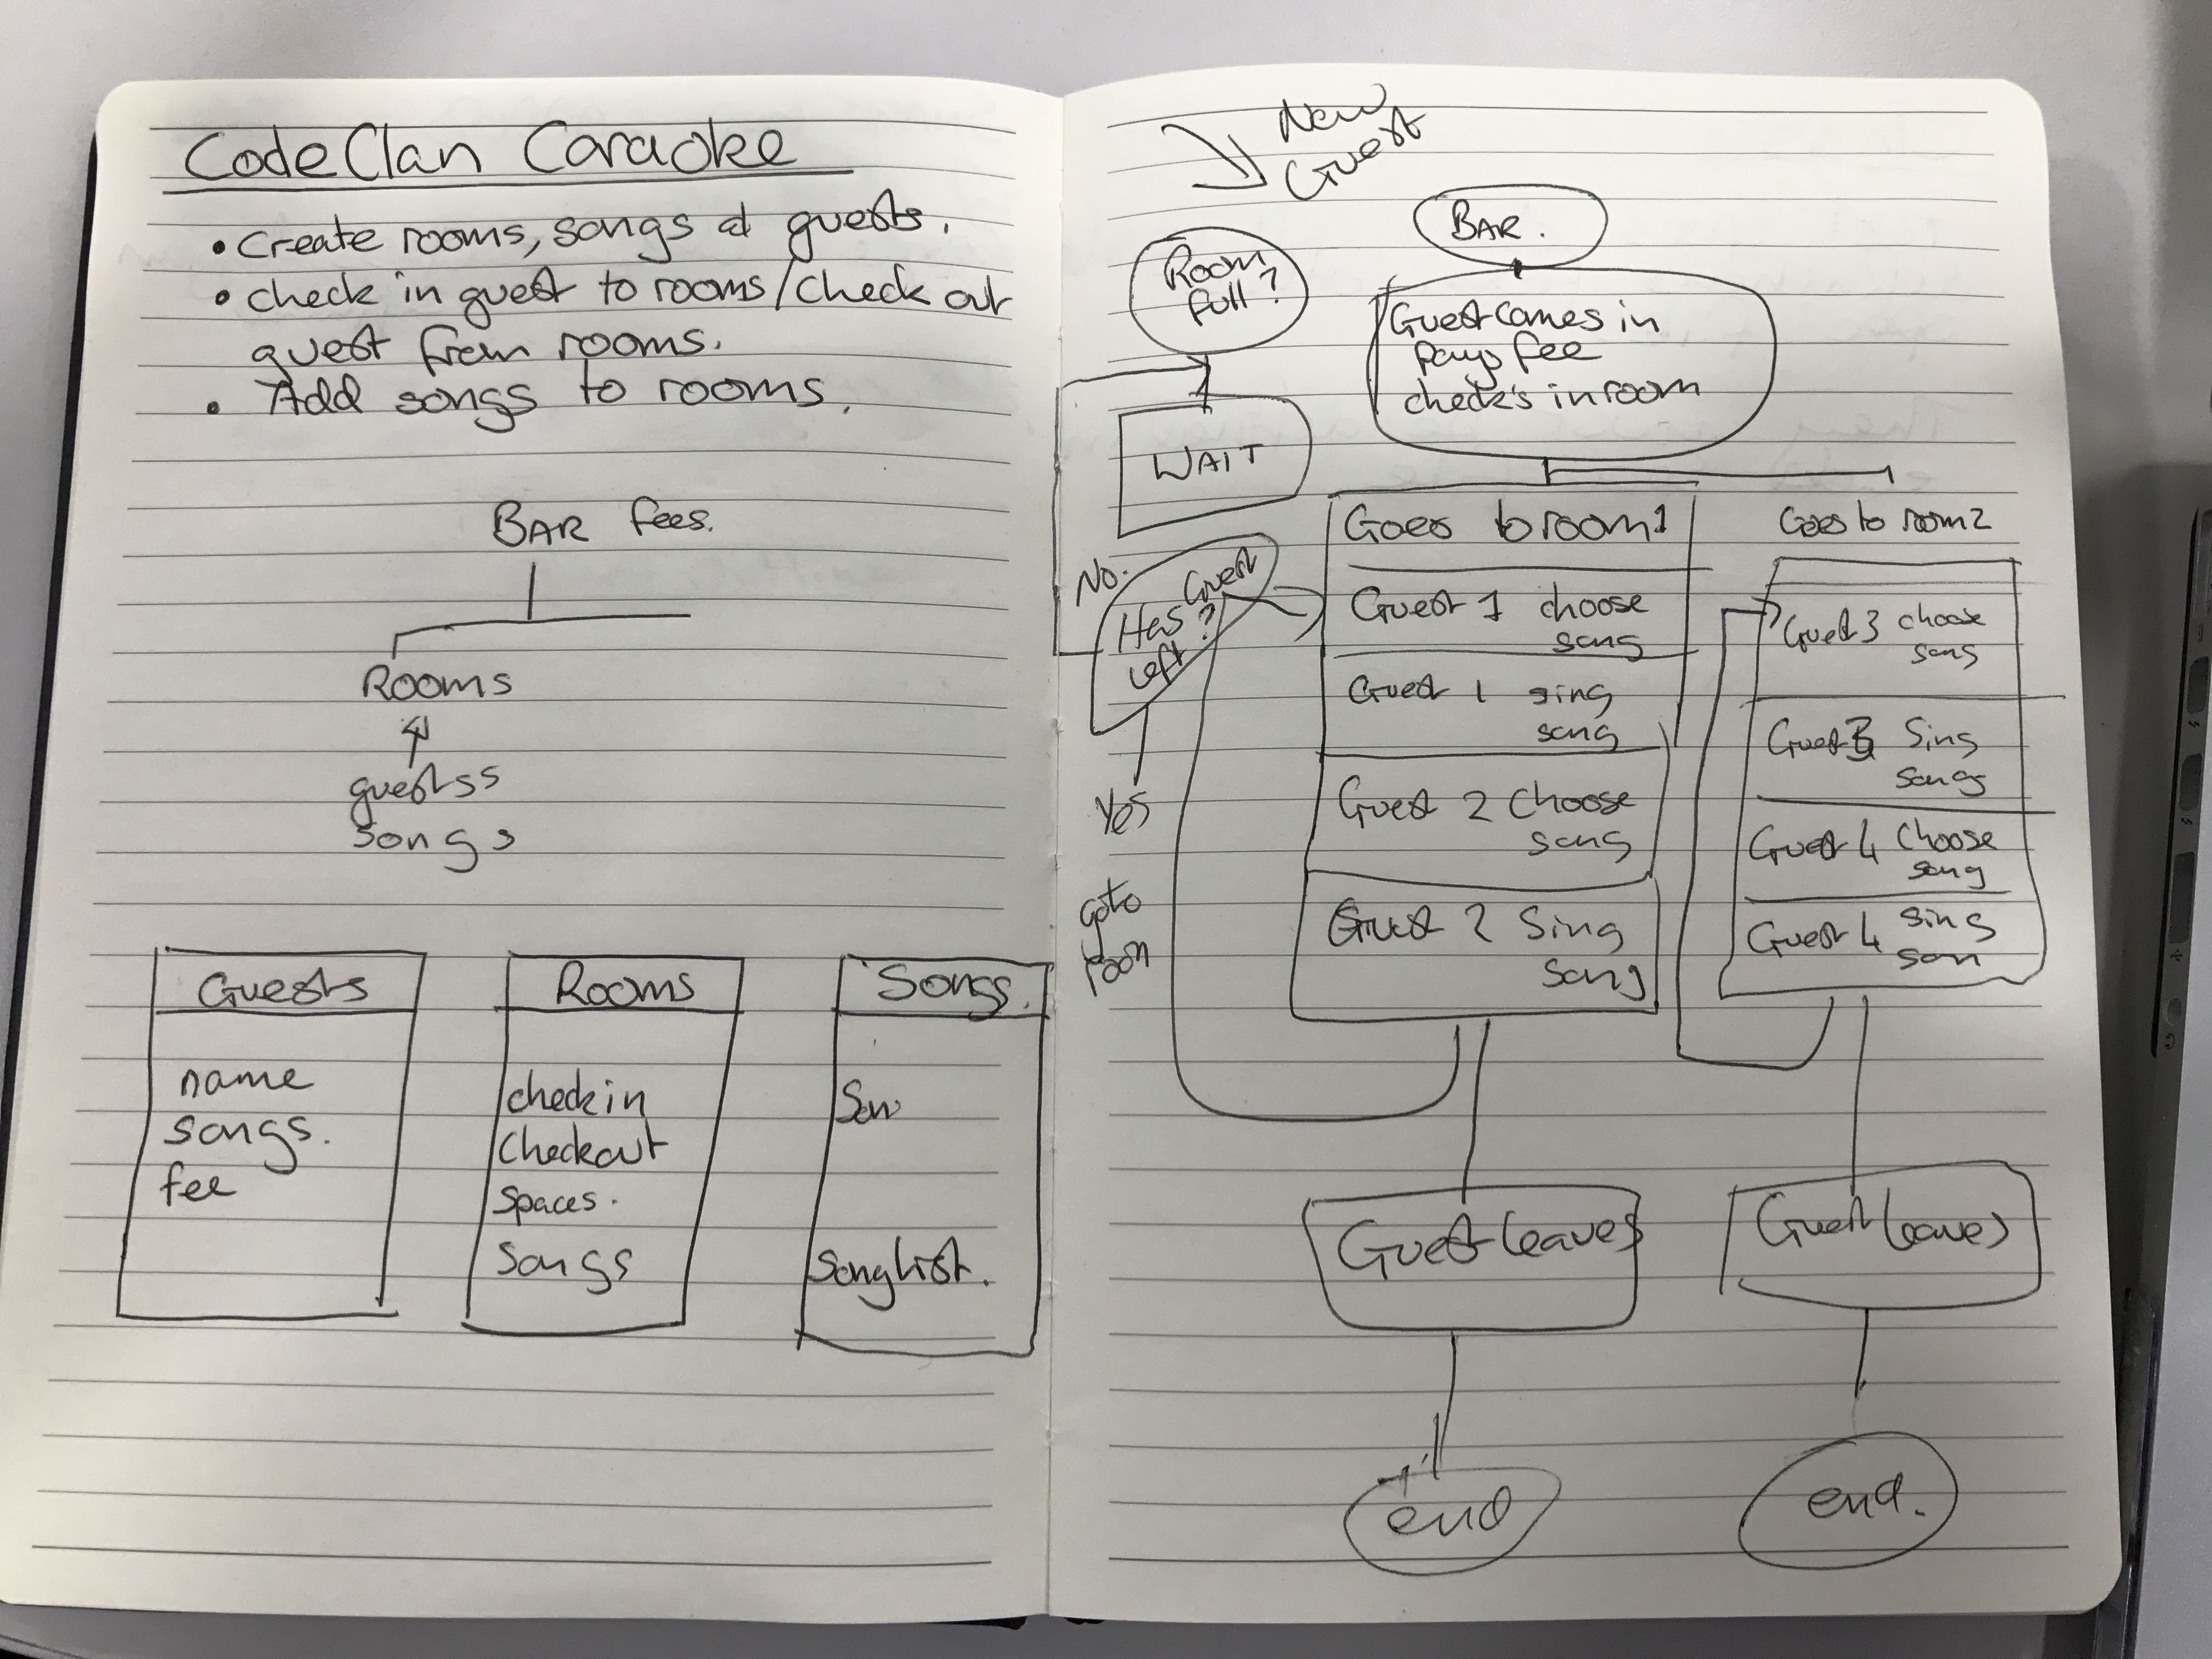 CodeClan Caraoke
• Create rooms, songs & guests.
• check in guest to rooms/check out
guest from rooms.
• Add songs to rooms.
BAR fees.
Rooms
guestss
songs
Guests
name
songs.
fee
Rooms
checkin
Checkout
Spaces.
Songs
Songs.
Son
Songlist.
New
Guest
Room
full?
WAIT
No.
Guest
Has ?
Left
Yes
goto
room
BAR.
Guest comes in
pays fee
check's in room
Goes to room 1
Guest 1 choose
song
Guest 1 sing
song
Guest 2 choose
song
Guest 2 Sing
song
Guest leaves
end
Goes to room 2
Guest 3 choose
song
Guest 3 Sing
songs
Guest 4 Choose
song
Guest 4 sing
son
Guest leaves
end.